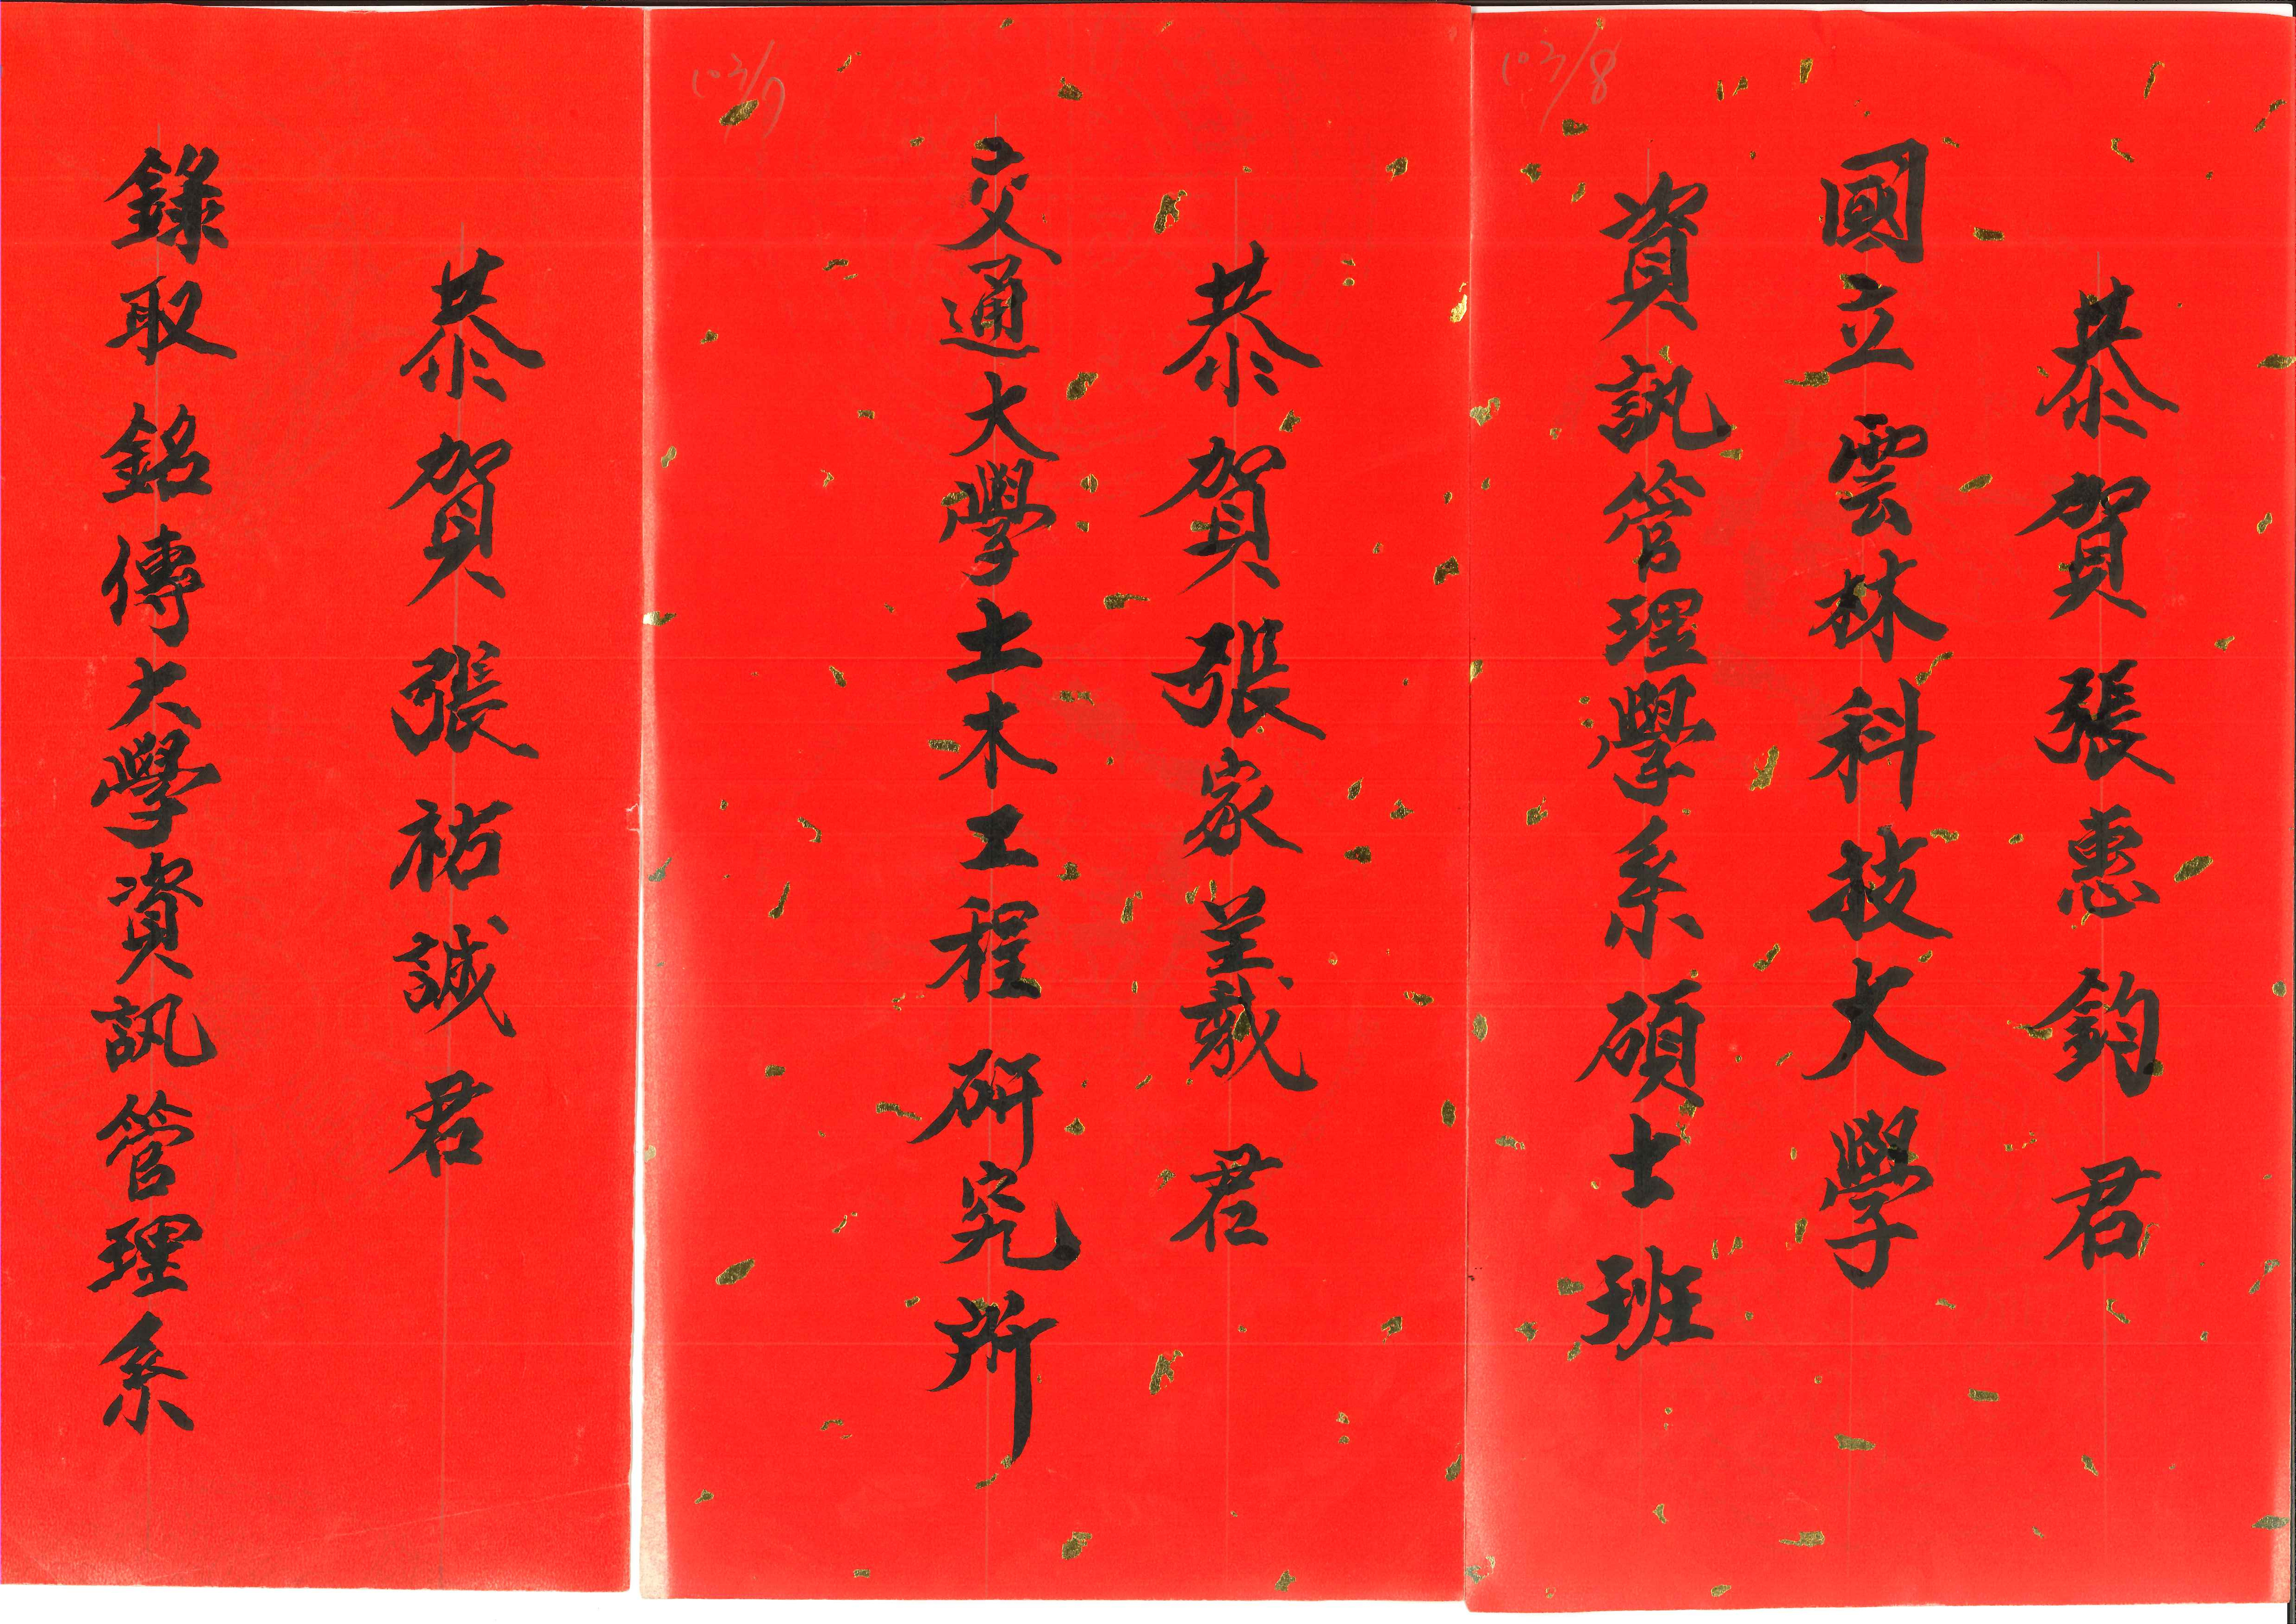 103/8
恭賀張惠鈞君
國立雲林科技大學
資訊管理學系碩士班
103/7
恭賀張家義君
交通大學土木工程研究所
恭賀張祐誠君
錄取銘傳大學資訊管理系